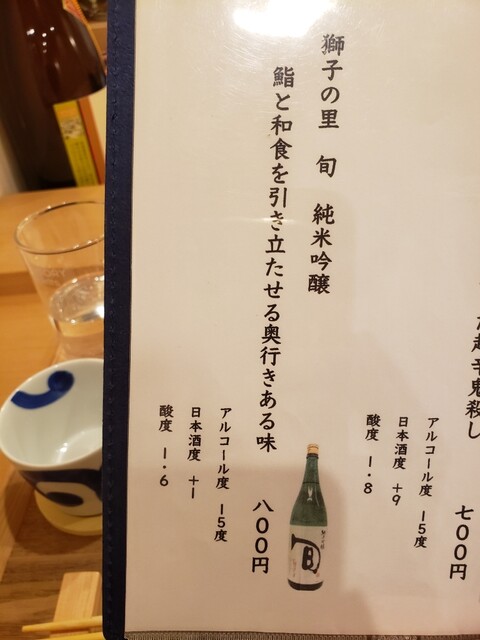 超辛鬼殺し
七〇〇円
アルコール度 15度
日本酒度 +9
酸度 1.8
獅子の里 旬 純米吟醸
鮨と和食を引き立たせる奥行きある味
八〇〇円
アルコール度 15度
日本酒度 +1
酸度 1.6
旬